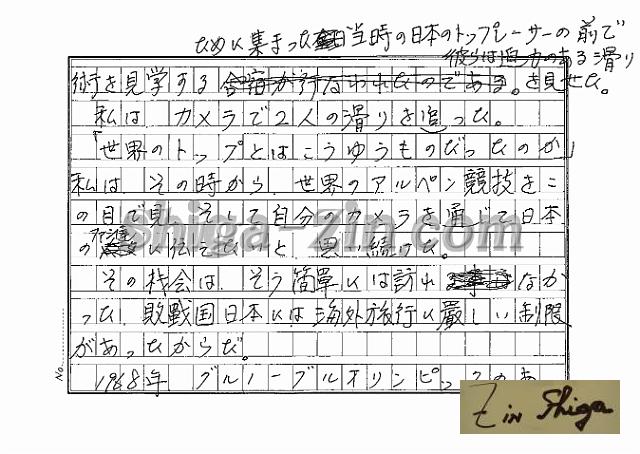 ために集まった当時の日本のトップレーサーの前で
彼らは迫力のある滑り
術を見学する合宿が行なわれたのである。を見せた。
私は カメラで2人の滑りを追った。
「世界のトップとはこうゆうものだったのか」
私は その時から、世界のアルペン競技をこ
の目で見、そして自分のカメラを通じて日本
のファンに伝えたいと、思い続けた。
その機会は、そう簡単には訪れなか
った、敗戦国日本には海外旅行に厳しい制限
があったからだ。
1968年 グルノーブルオリンピックのあ
No.
shiga-zin.com
Z in Shiga